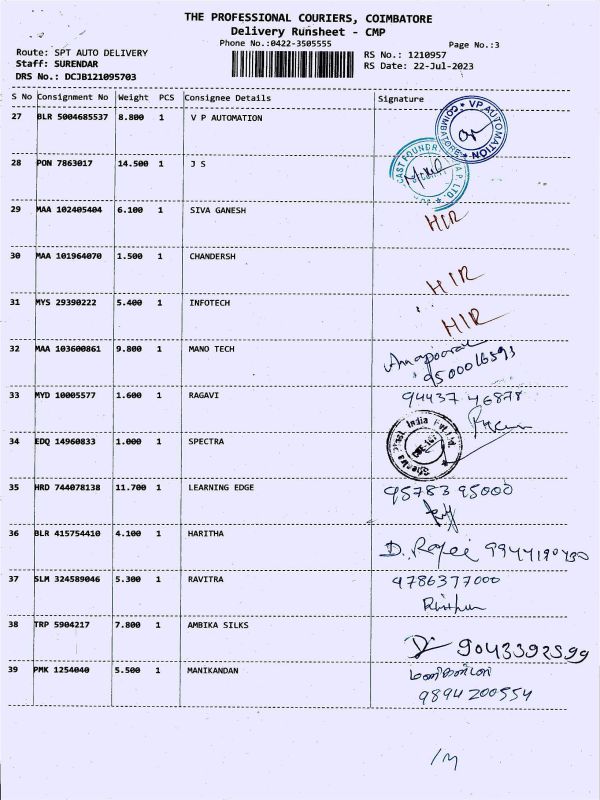 THE PROFESSIONAL COURIERS, COIMBATORE
Delivery Runsheet - CMP
Phone No.:0422-3505555
Page No.:3
Route: SPT AUTO DELIVERY
RS No.: 1210957
Staff: SURENDAR
RS Date: 22-Jul-2023
DRS No.: DCJB121095703
S No Consignment No Weight PCS Consignee Details Signature
27 BLR 5004685537 8.800 1 V P AUTOMATION
VP AUTOMATION COIMBATORE
28 PON 7863017 14.500 1 J S
CAST FOUNDR P. LTD.
29 MAA 102405404 6.100 1 SIVA GANESH HIR
30 MAA 101964070 1.500 1 CHANDERSH HIR
31 MYS 29390222 5.400 1 INFOTECH HIR
32 MAA 103600861 9.800 1 MANO TECH
9500016593
33 MYD 10005577 1.600 1 RAGAVI 94437 46878
34 EDQ 14960833 1.000 1 SPECTRA
India Pvt. Ltd.
35 HRD 744078138 11.700 1 LEARNING EDGE 95783 95000
36 BLR 415754410 4.100 1 HARITHA
D.
37 SLM 324589046 5.300 1 RAVITRA 9786377000
38 TRP 5904217 7.800 1 AMBIKA SILKS
9043392599
39 PMK 1254040 5.500 1 MANIKANDAN
9894200554